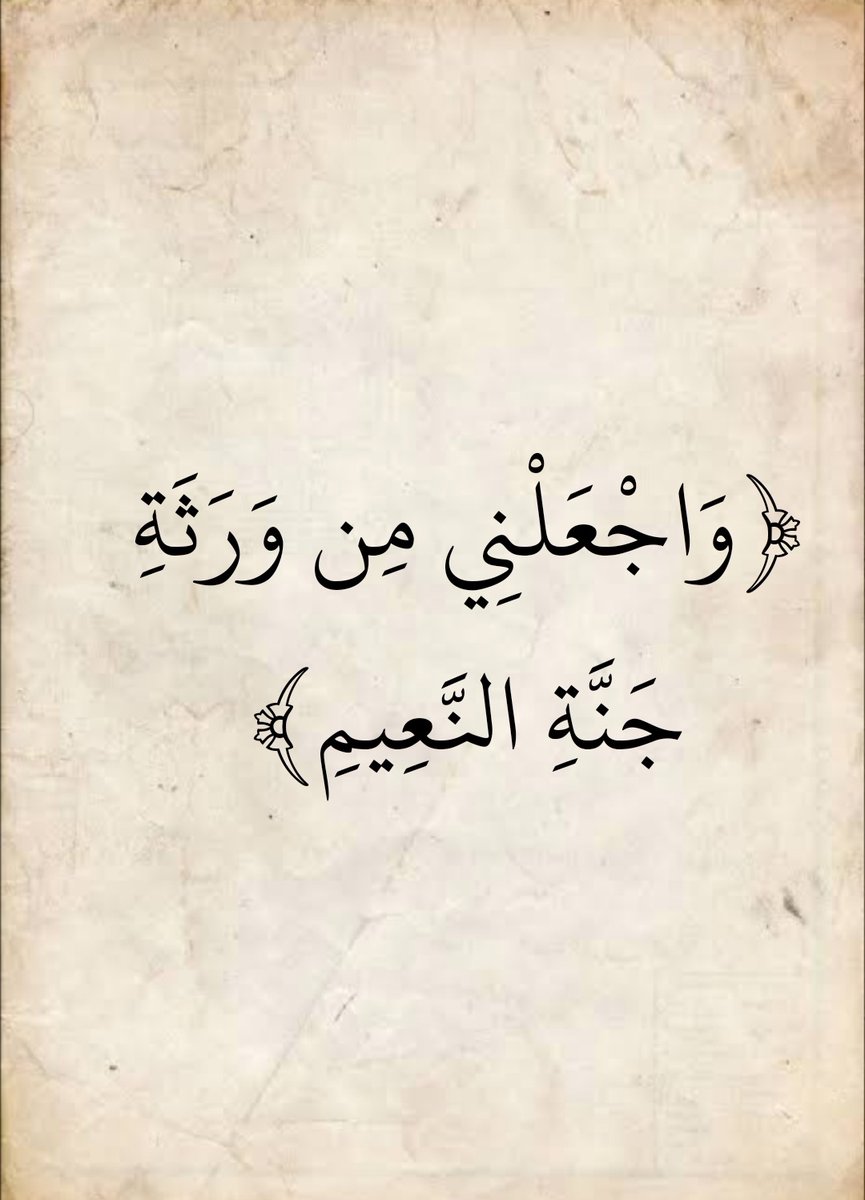 ﴿وَاجْعَلْنِي مِن وَرَثَةِ
جَنَّةِ النَّعِيمِ﴾